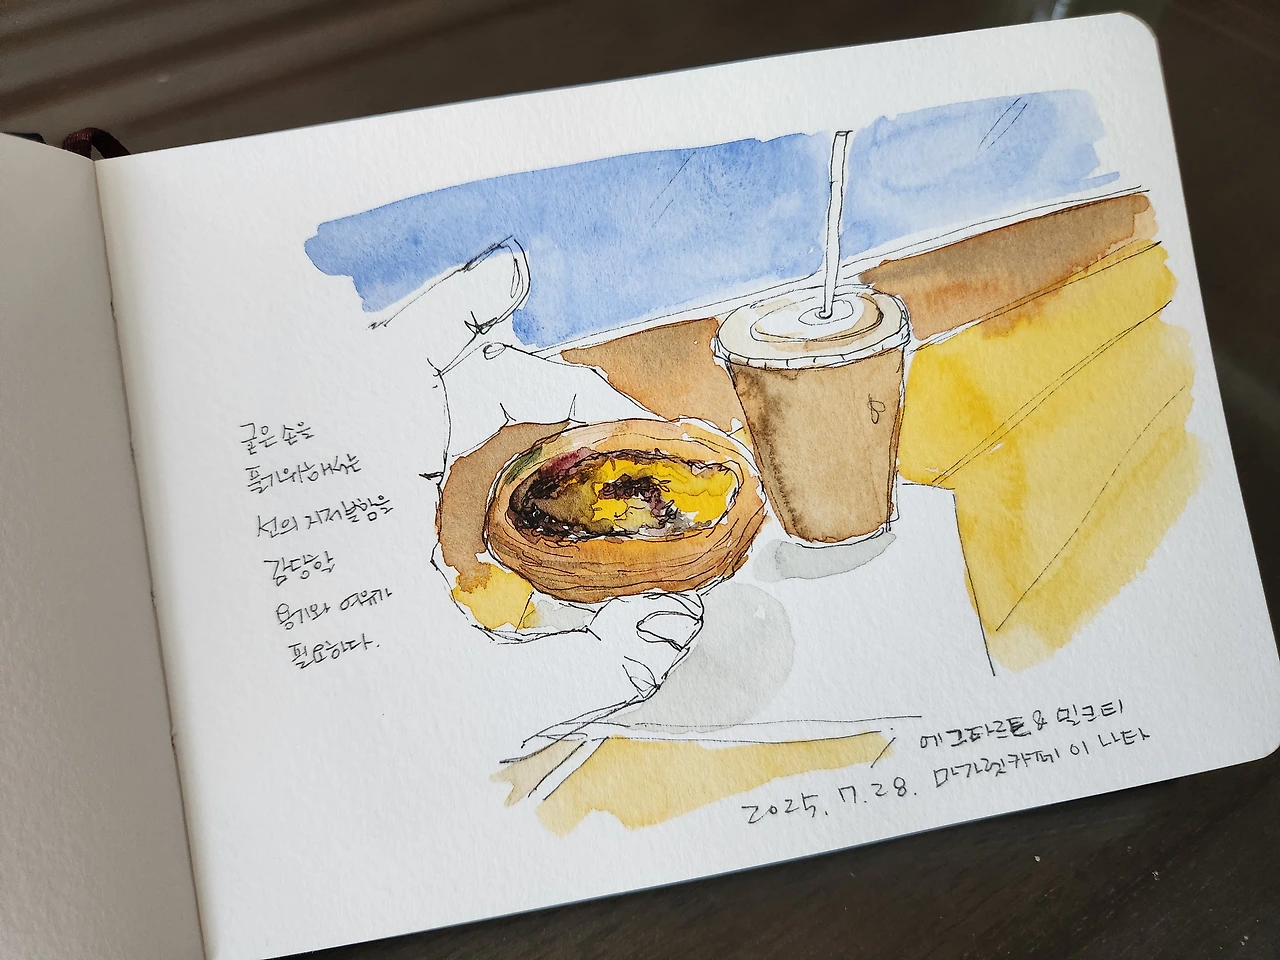 굳은 손을
풀기위해서는
선의 지저분함을
감당할
용기와 여유가
필요하다.
에그타르트 & 밀크티
2025. 7. 28. 마가렛카페 이 나타